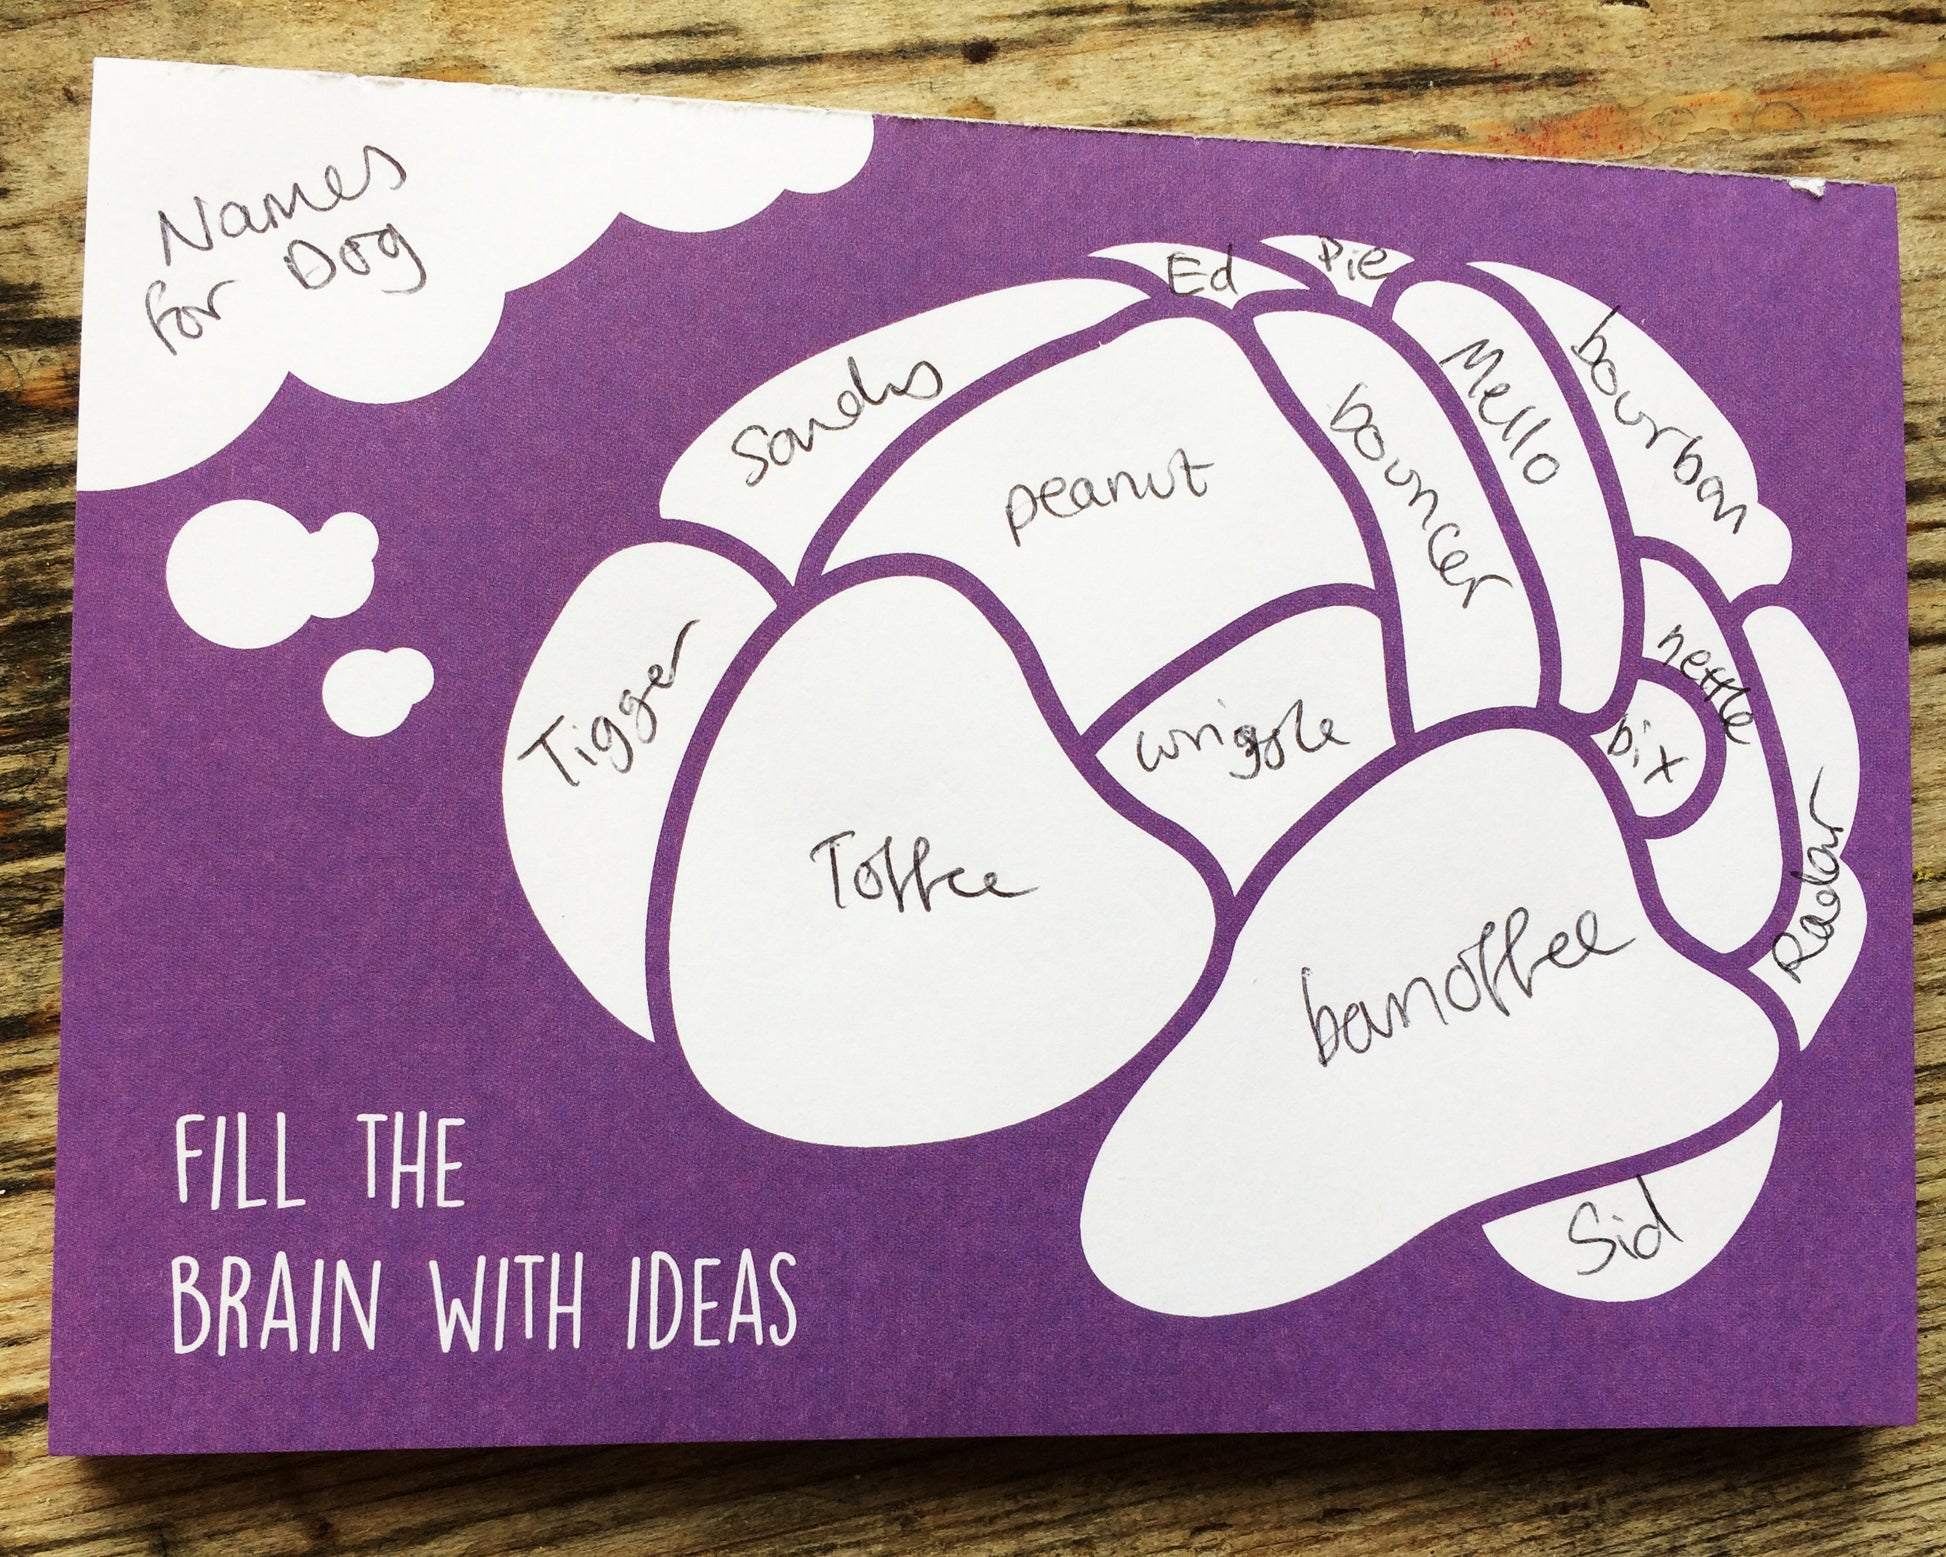 Names
for Dog
Ed
Pie
Sandy
peanut
bouncer
Mello
bourban
Tigger
wriggle
nettle
bix
Toffee
banoffee
Radar
Sid
FILL THE
BRAIN WITH IDEAS